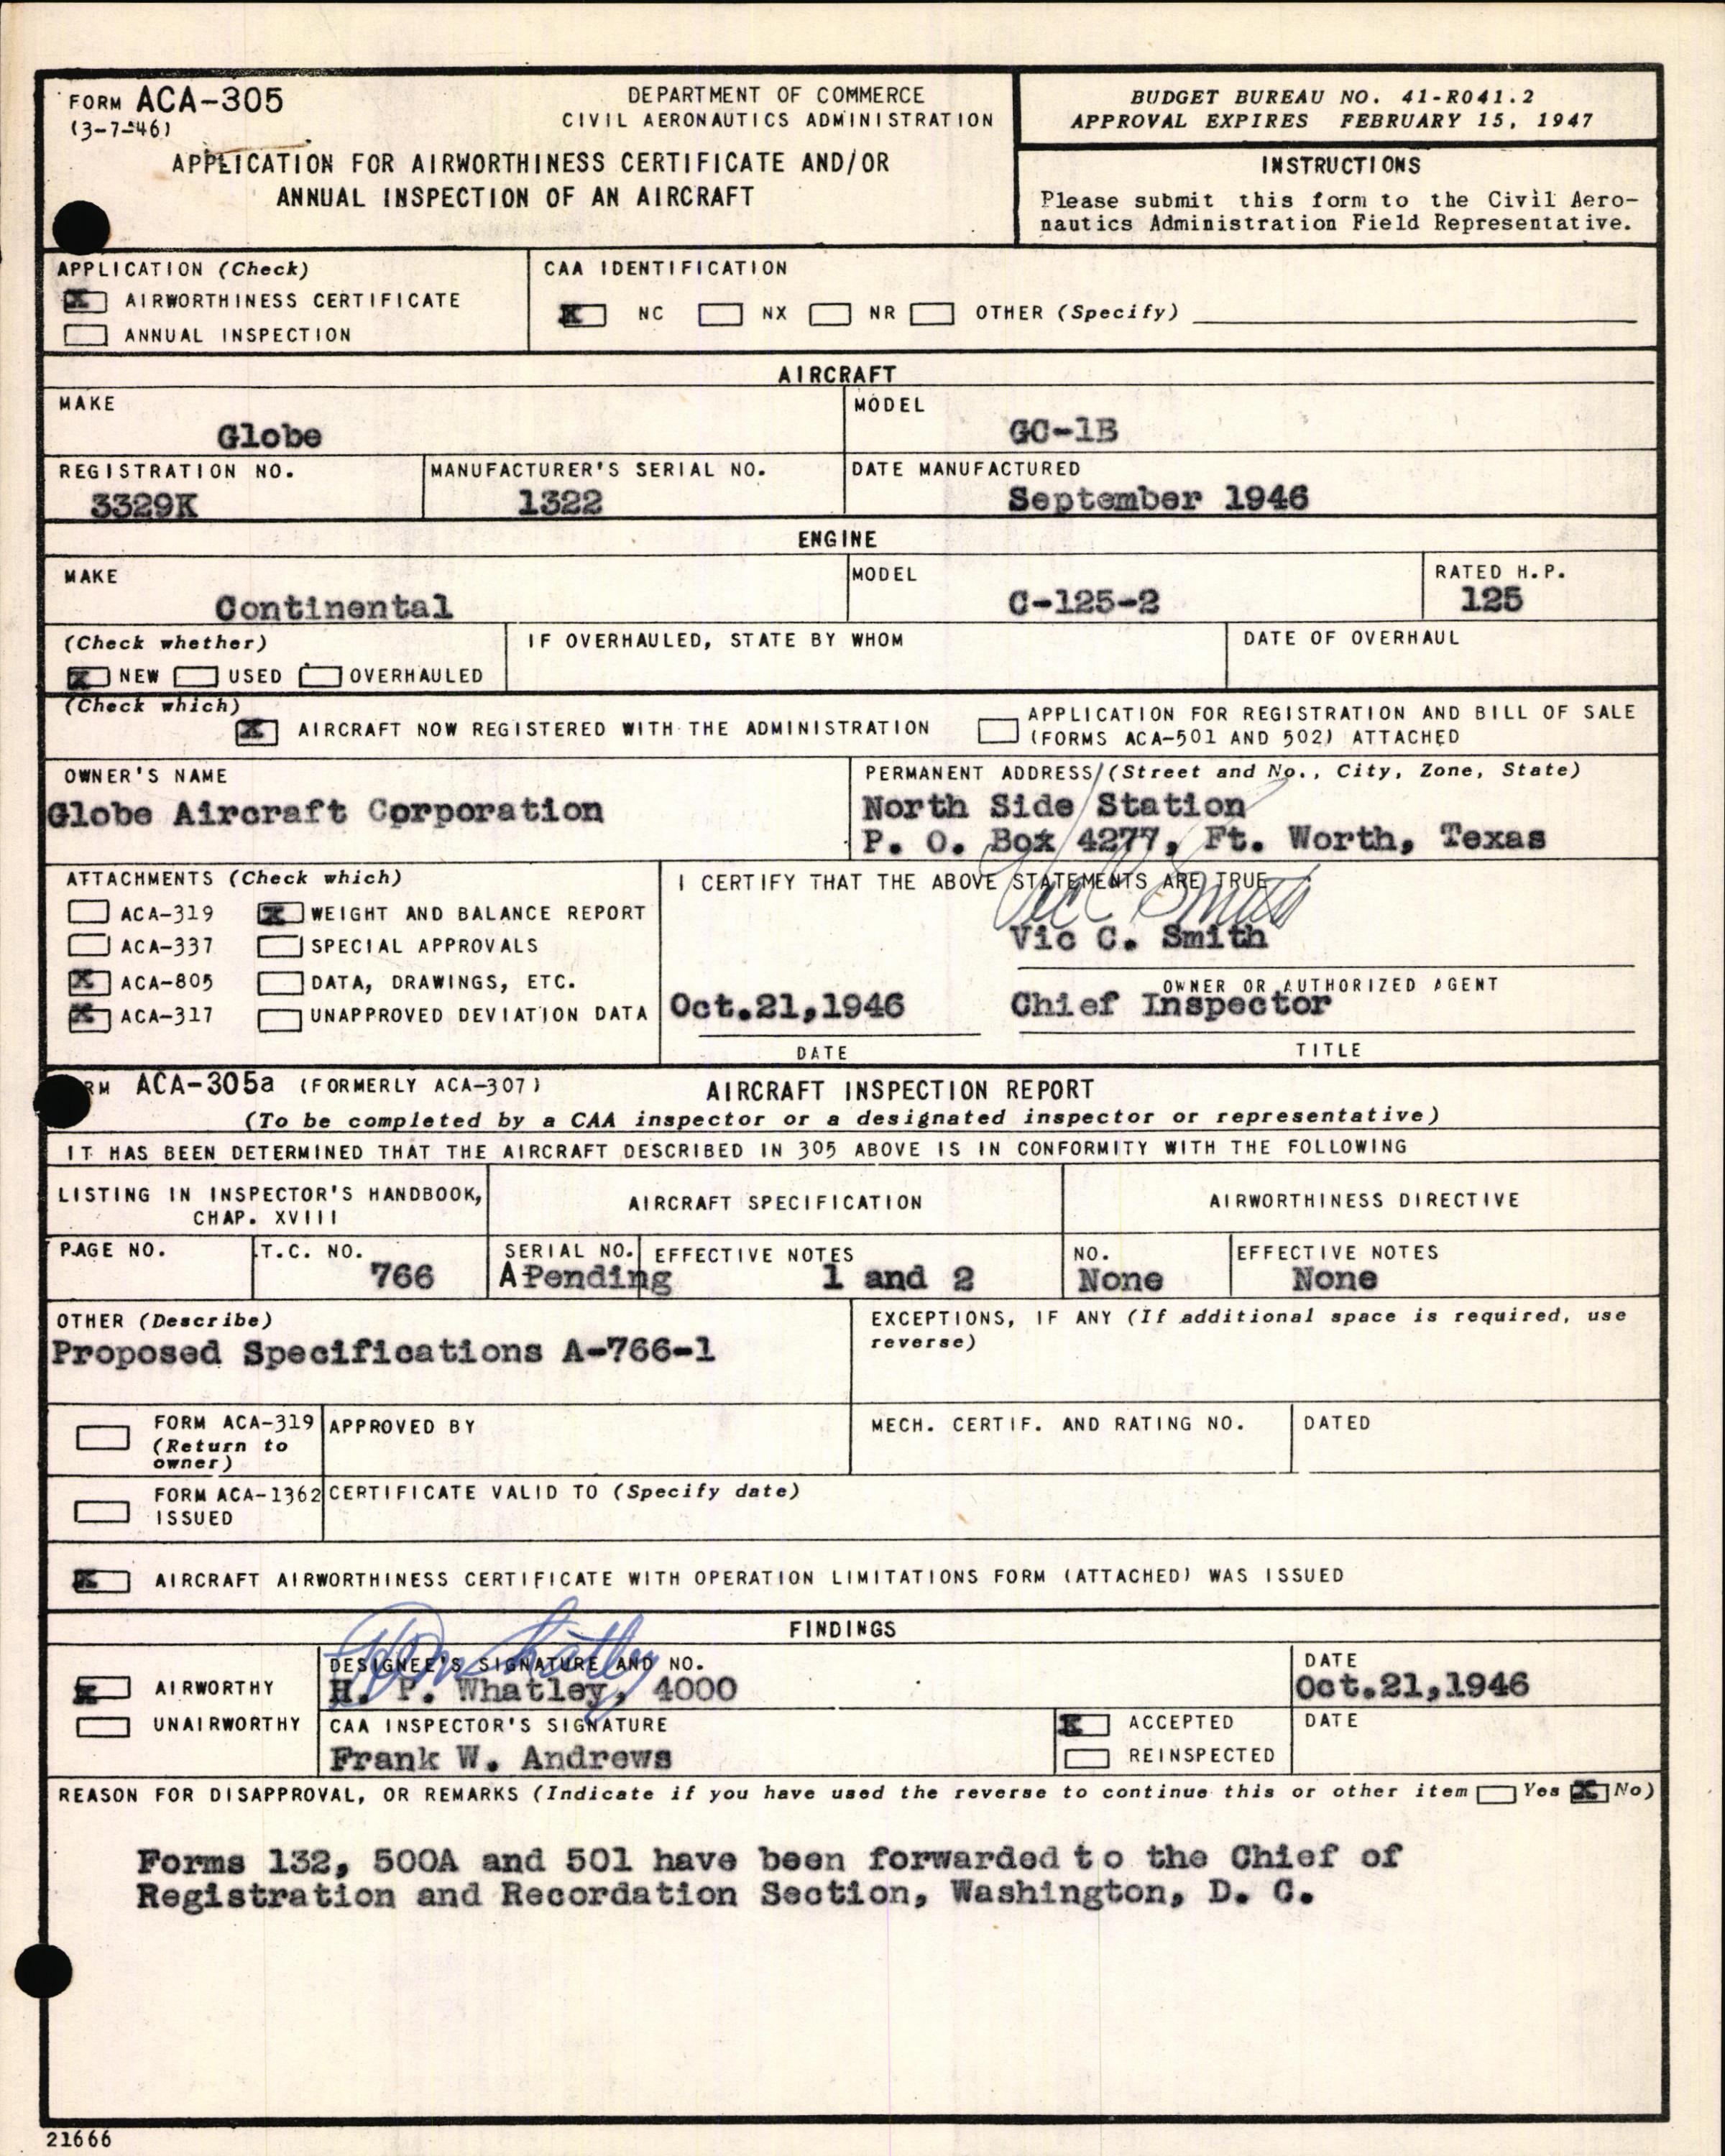 FORM ACA-305
(3-7-46)
DEPARTMENT OF COMMERCE
CIVIL AERONAUTICS ADMINISTRATION
APPLICATION FOR AIRWORTHINESS CERTIFICATE AND/OR
ANNUAL INSPECTION OF AN AIRCRAFT
BUDGET BUREAU NO. 41-R041.2
APPROVAL EXPIRES FEBRUARY 15, 1947
INSTRUCTIONS
Please submit this form to the Civil Aero-
nautics Administration Field Representative.
APPLICATION (Check)
X AIRWORTHINESS CERTIFICATE
ANNUAL INSPECTION
CAA IDENTIFICATION
X NC NX NR OTHER (Specify)
AIRCRAFT
MAKE
Globe
MODEL
GC-1B
REGISTRATION NO.
3329K
MANUFACTURER'S SERIAL NO.
1322
DATE MANUFACTURED
September 1946
ENGINE
MAKE
Continental
MODEL
C-125-2
RATED H.P.
125
(Check whether)
X NEW USED OVERHAULED
IF OVERHAULED, STATE BY WHOM
DATE OF OVERHAUL
(Check which)
X AIRCRAFT NOW REGISTERED WITH THE ADMINISTRATION
APPLICATION FOR REGISTRATION AND BILL OF SALE
(FORMS ACA-501 AND 502) ATTACHED
OWNER'S NAME
Globe Aircraft Corporation
PERMANENT ADDRESS (Street and No., City, Zone, State)
North Side Station
P. O. Box 4277, Ft. Worth, Texas
ATTACHMENTS (Check which)
ACA-319 X WEIGHT AND BALANCE REPORT
ACA-337 SPECIAL APPROVALS
X ACA-805 DATA, DRAWINGS, ETC.
X ACA-317 UNAPPROVED DEVIATION DATA
I CERTIFY THAT THE ABOVE STATEMENTS ARE TRUE
Vic C Smith
Vic C. Smith
OWNER OR AUTHORIZED AGENT
Oct.21,1946 Chief Inspector
DATE TITLE
RM ACA-305a (FORMERLY ACA-307) AIRCRAFT INSPECTION REPORT
(To be completed by a CAA inspector or a designated inspector or representative)
IT HAS BEEN DETERMINED THAT THE AIRCRAFT DESCRIBED IN 305 ABOVE IS IN CONFORMITY WITH THE FOLLOWING
LISTING IN INSPECTOR'S HANDBOOK,
CHAP. XVIII
AIRCRAFT SPECIFICATION
AIRWORTHINESS DIRECTIVE
PAGE NO.
T.C. NO.
766
SERIAL NO.
A Pending
EFFECTIVE NOTES
1 and 2
NO.
None
EFFECTIVE NOTES
None
OTHER (Describe)
Proposed Specifications A-766-1
EXCEPTIONS, IF ANY (If additional space is required, use
reverse)
FORM ACA-319
(Return to
owner)
APPROVED BY
MECH. CERTIF. AND RATING NO.
DATED
FORM ACA-1362
ISSUED
CERTIFICATE VALID TO (Specify date)
X AIRCRAFT AIRWORTHINESS CERTIFICATE WITH OPERATION LIMITATIONS FORM (ATTACHED) WAS ISSUED
FINDINGS
X AIRWORTHY
UNAIRWORTHY
DESIGNEE'S SIGNATURE AND NO.
HPWhatley
H. P. Whatley, 4000
DATE
Oct.21,1946
CAA INSPECTOR'S SIGNATURE
Frank W. Andrews
X ACCEPTED
REINSPECTED
DATE
REASON FOR DISAPPROVAL, OR REMARKS (Indicate if you have used the reverse to continue this or other item Yes X No)
Forms 132, 500A and 501 have been forwarded to the Chief of
Registration and Recordation Section, Washington, D. C.
21666